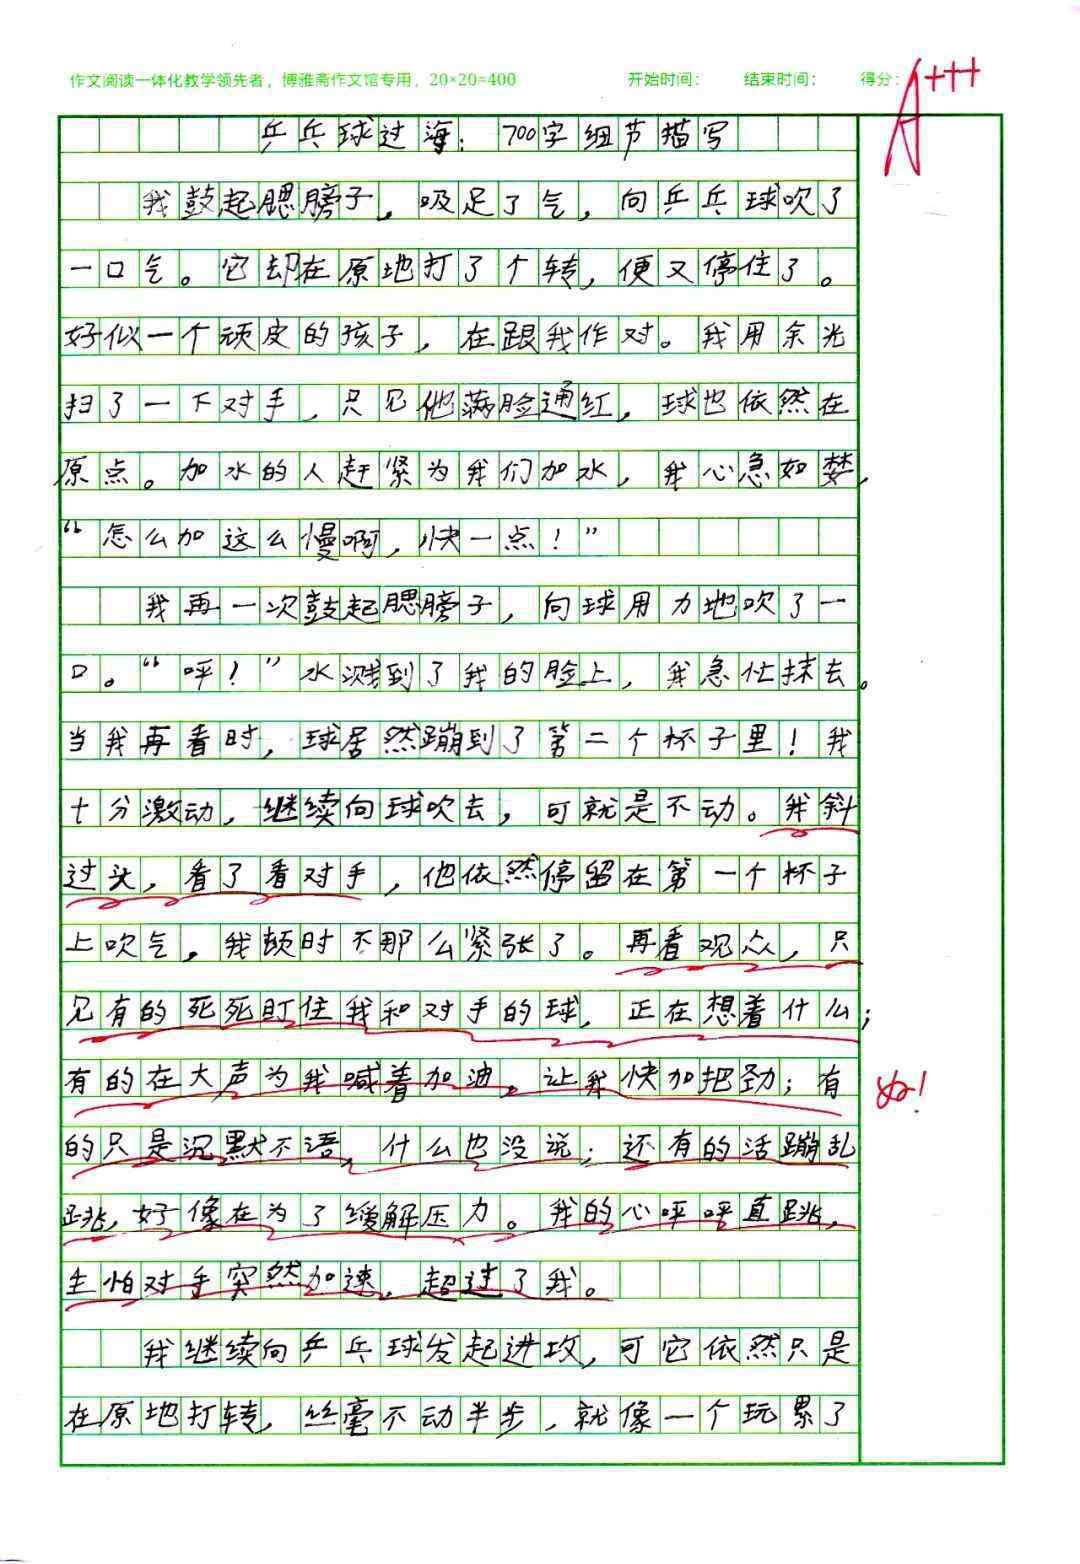 作文阅读一体化教学领先者，博雅斋作文馆专用，20×20=400 开始时间： 结束时间： 得分：
A+++
乒乓球过海：700字细节描写
我鼓起腮膀子，吸足了气，向乒乓球吹了
一口气。它却在原地打了个转，便又停住了。
好似一个顽皮的孩子，在跟我作对。我用余光
扫了一下对手，只见他满脸通红，球也依然在
原点。加水的人赶紧为我们加水，我心急如焚，
“怎么加这么慢啊，快一点！”
我再一次鼓起腮膀子，向球用力地吹了一
口。“呼！”水溅到了我的脸上，我急忙抹去。
当我再看时，球居然蹦到了第二个杯子里！我
十分激动，继续向球吹去，可就是不动。我斜
过头，看了看对手，他依然停留在第一个杯子
上吹气。我顿时不那么紧张了。再看观众，只
见有的死死盯住我和对手的球，正在想着什么；
有的在大声为我喊着加油，让我快加把劲；有
的只是沉默不语，什么也没说；还有的活蹦乱
跳，好像在为了缓解压力。我的心呯呯直跳，
生怕对手突然加速，超过了我。
好！
我继续向乒乓球发起进攻，可它依然只是
在原地打转，丝毫不动半步，就像一个玩累了